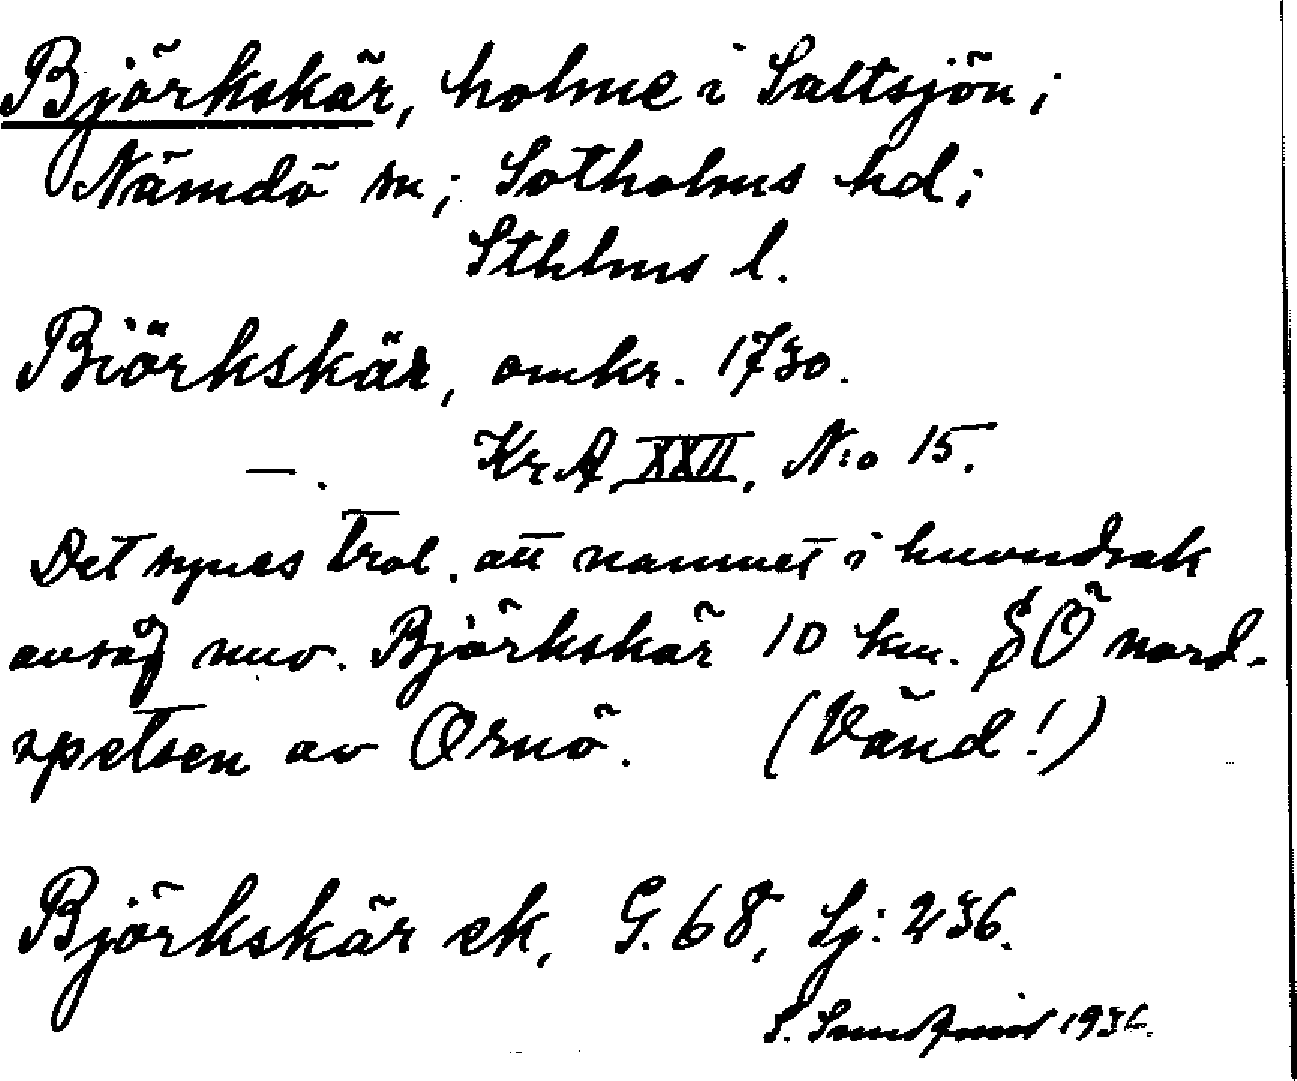 Björkskär, holme i Saltsjön;
Nämdö sn; Sotholms hd;
Sthlms l.
Biörkskär, omkr. 1730.
—. Kr A, XXII, N:o 15.
Det synes trol. att namnet i huvudsak
avsåg nuv. Björkskär 10 km. SÖ nord-
spetsen av Ornö. (Vänd!)
Björkskär ek, G. 68, Sj: 236.
S. 1936.